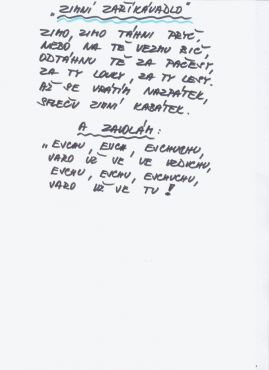 „ZIMNÍ ZAŘÍKÁVADLO"
ZIMO, ZIMO TÁHNI PRYČ,
NEBO NA TĚ VEZMU BIČ,
ODTÁHNU TĚ ZA PAČESY,
ZA TY LOUKY, ZA TY LESY.
AŽ SE VRÁTÍM NAZPÁTEK,
SVLEČU ZIMNÍ KABÁTEK.
A ZAVOLÁM:
„EUCHU, EUCH, EUCHUCHU,
JARO UŽ JE VE VZDUCHU,
EUCHU, EUCHU, EUCHUCHU,
JARO UŽ JE TU!